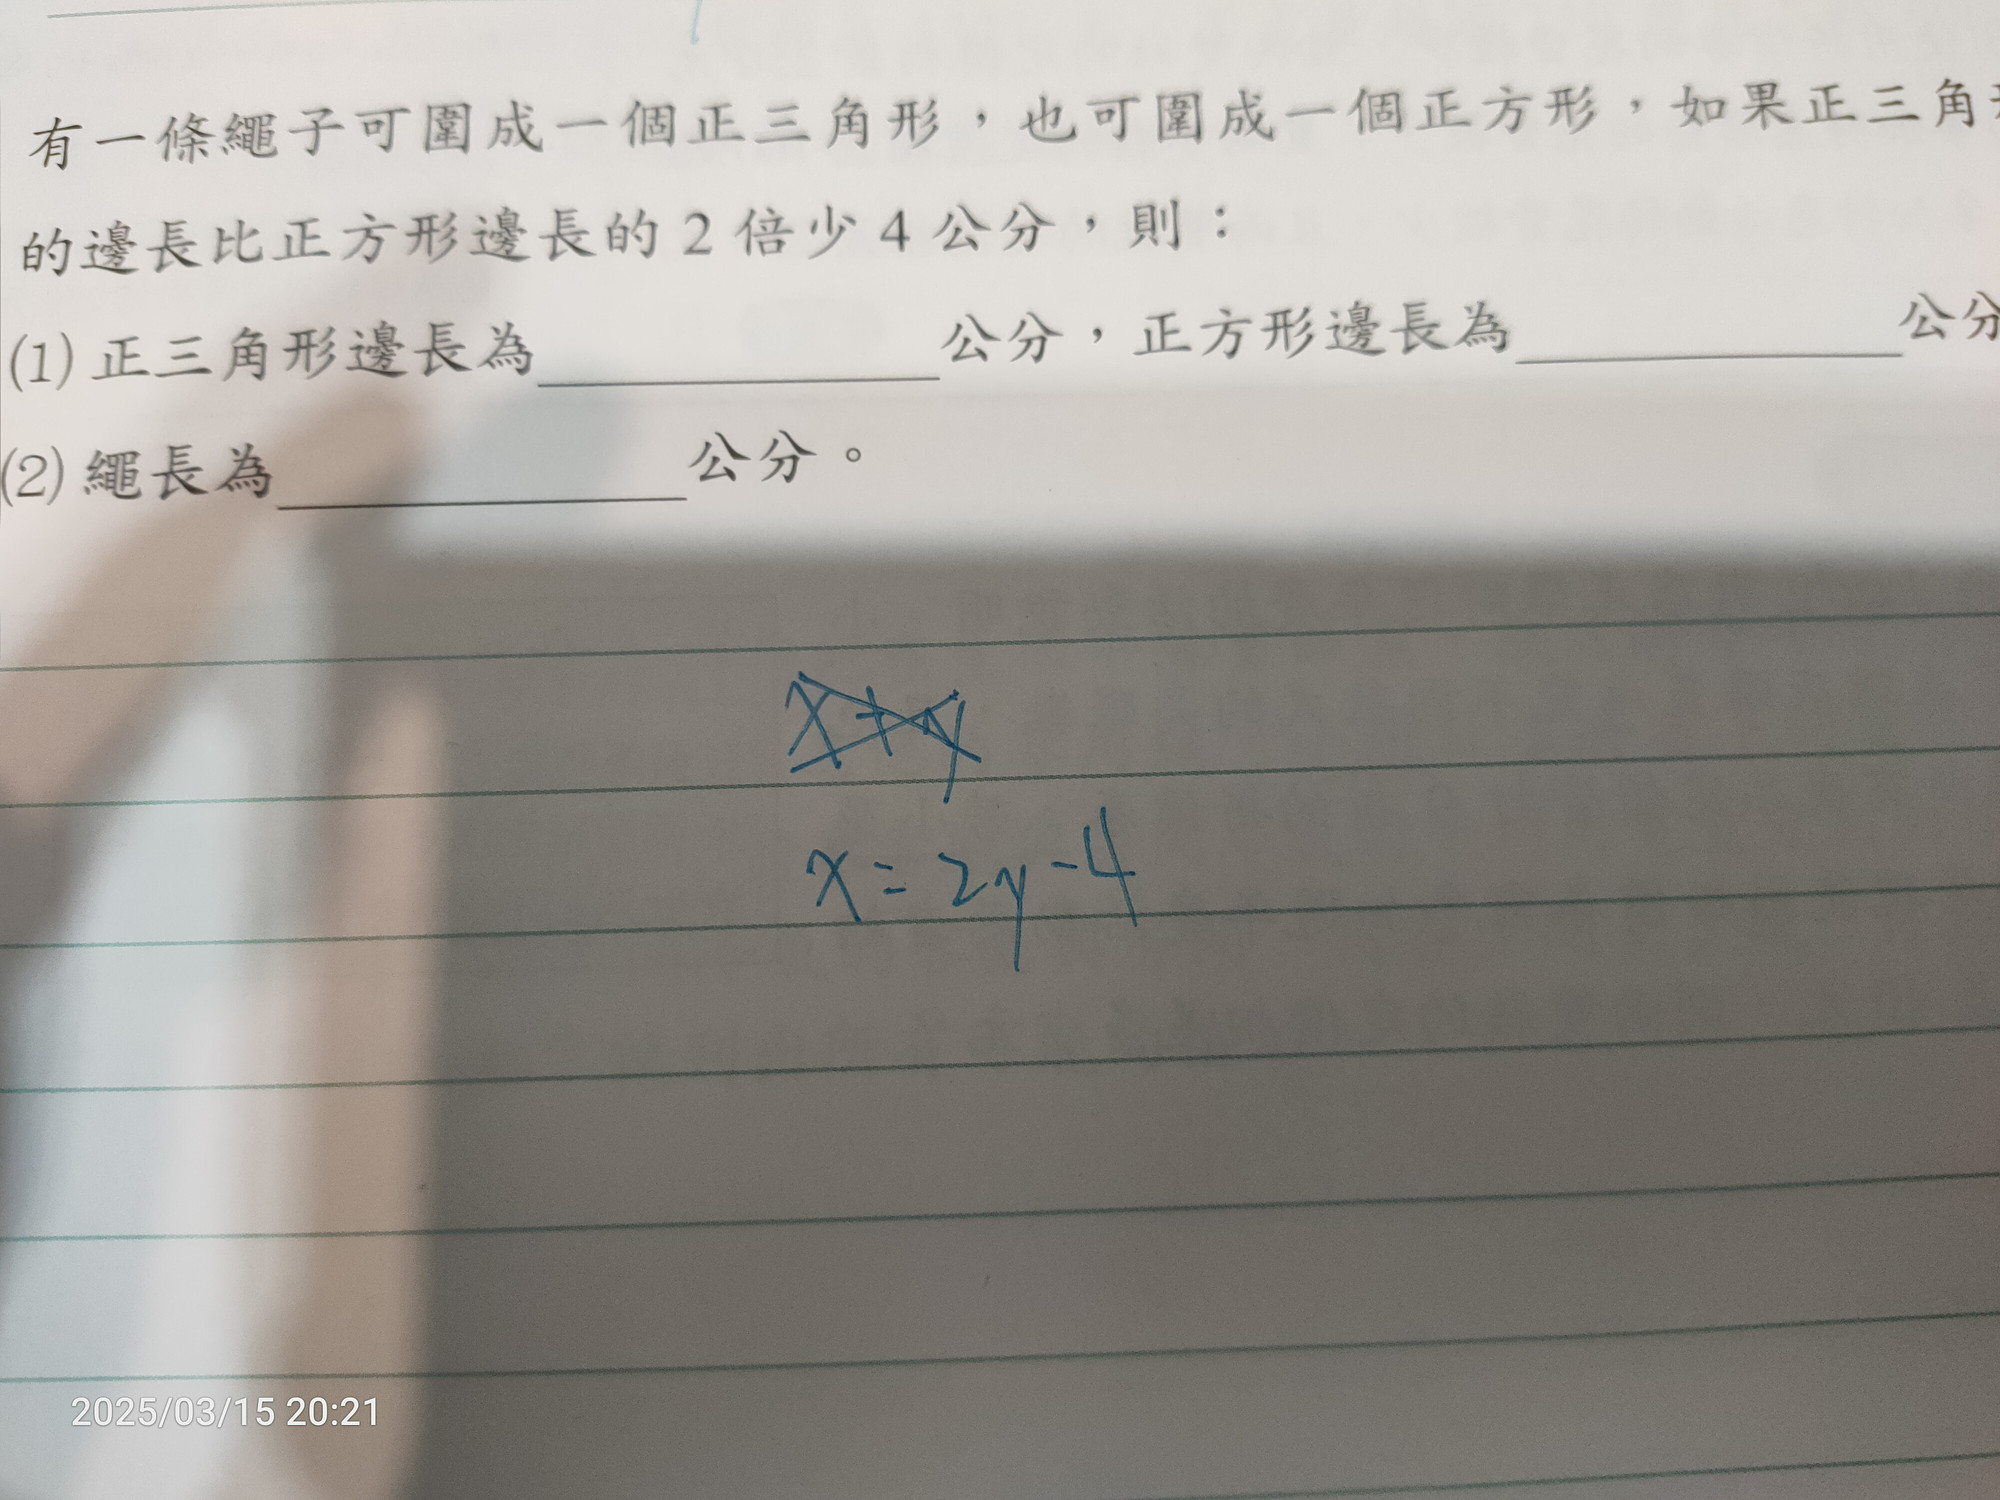 有一條繩子可圍成一個正三角形，也可圍成一個正方形，如果正三角形
的邊長比正方形邊長的 2 倍少 4 公分，則：
(1) 正三角形邊長為__________公分，正方形邊長為__________公分
(2) 繩長為__________公分。
x = 2y - 4
2025/03/15 20:21